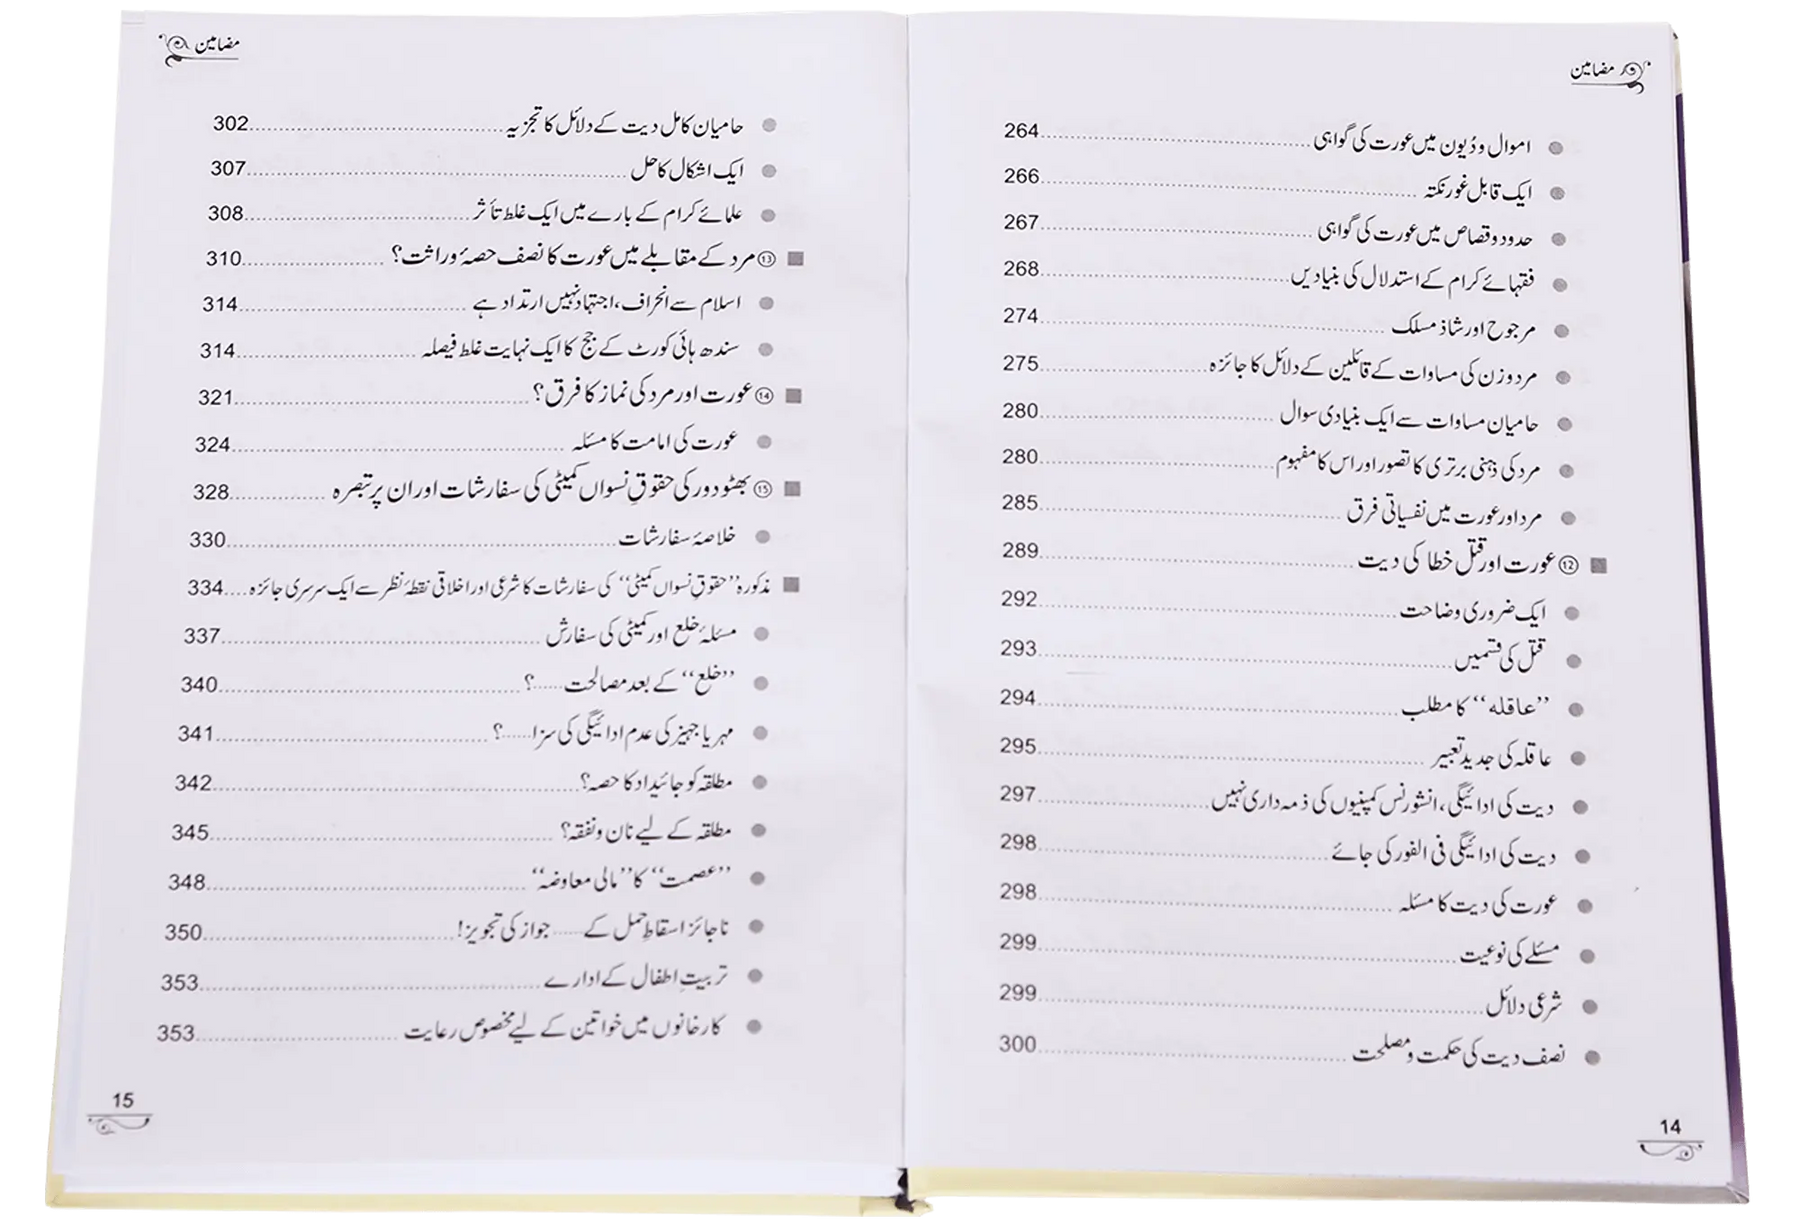 مضامین
اموال و دُیون میں عورت کی گواہی 264
ایک قابل غور نکتہ 266
حدود و قصاص میں عورت کی گواہی 267
فقہائے کرام کے استدلال کی بنیادیں 268
مرجوح اور شاذ مسلک 274
مرد و زن کی مساوات کے قائلین کے دلائل کا جائزہ 275
حامیان مساوات سے ایک بنیادی سوال 280
مرد کی ذہنی برتری کا تصور اور اس کا مفہوم 280
مرد اور عورت میں نفسیاتی فرق 285
⑫ عورت اور قتل خطا کی دیت 289
ایک ضروری وضاحت 292
قتل کی قسمیں 293
”عاقلہ“ کا مطلب 294
عاقلہ کی جدید تعبیر 295
دیت کی ادائیگی، انشورنس کمپنیوں کی ذمہ داری نہیں 297
دیت کی ادائیگی فی الفور کی جائے 298
عورت کی دیت کا مسئلہ 298
مسئلے کی نوعیت 299
شرعی دلائل 299
نصف دیت کی حکمت و مصلحت 300
14
مضامین
حامیان کامل دیت کے دلائل کا تجزیہ 302
ایک اشکال کا حل 307
علمائے کرام کے بارے میں ایک غلط تأثر 308
⑬ مرد کے مقابلے میں عورت کا نصف حصۂ وراثت؟ 310
اسلام سے انحراف، اجتہاد نہیں ارتداد ہے 314
سندھ ہائی کورٹ کے جج کا ایک نہایت غلط فیصلہ 314
⑭ عورت اور مرد کی نماز کا فرق؟ 321
عورت کی امامت کا مسئلہ 324
⑮ بھٹو دور کی حقوقِ نسواں کمیٹی کی سفارشات اور ان پر تبصرہ 328
خلاصۂ سفارشات 330
مذکورہ ”حقوقِ نسواں کمیٹی“ کی سفارشات کا شرعی اور اخلاقی نقطۂ نظر سے ایک سرسری جائزہ 334
مسئلۂ خلع اور کمیٹی کی سفارش 337
”خلع“ کے بعد مصالحت......؟ 340
مہر یا جہیز کی عدم ادائیگی کی سزا......؟ 341
مطلقہ کو جائیداد کا حصہ؟ 342
مطلقہ کے لیے نان و نفقہ؟ 345
”عصمت“ کا ”مالی معاوضہ“ 348
ناجائز اسقاطِ حمل کے...... جواز کی تجویز! 350
تربیتِ اطفال کے ادارے 353
کارخانوں میں خواتین کے لیے مخصوص رعایت 353
15